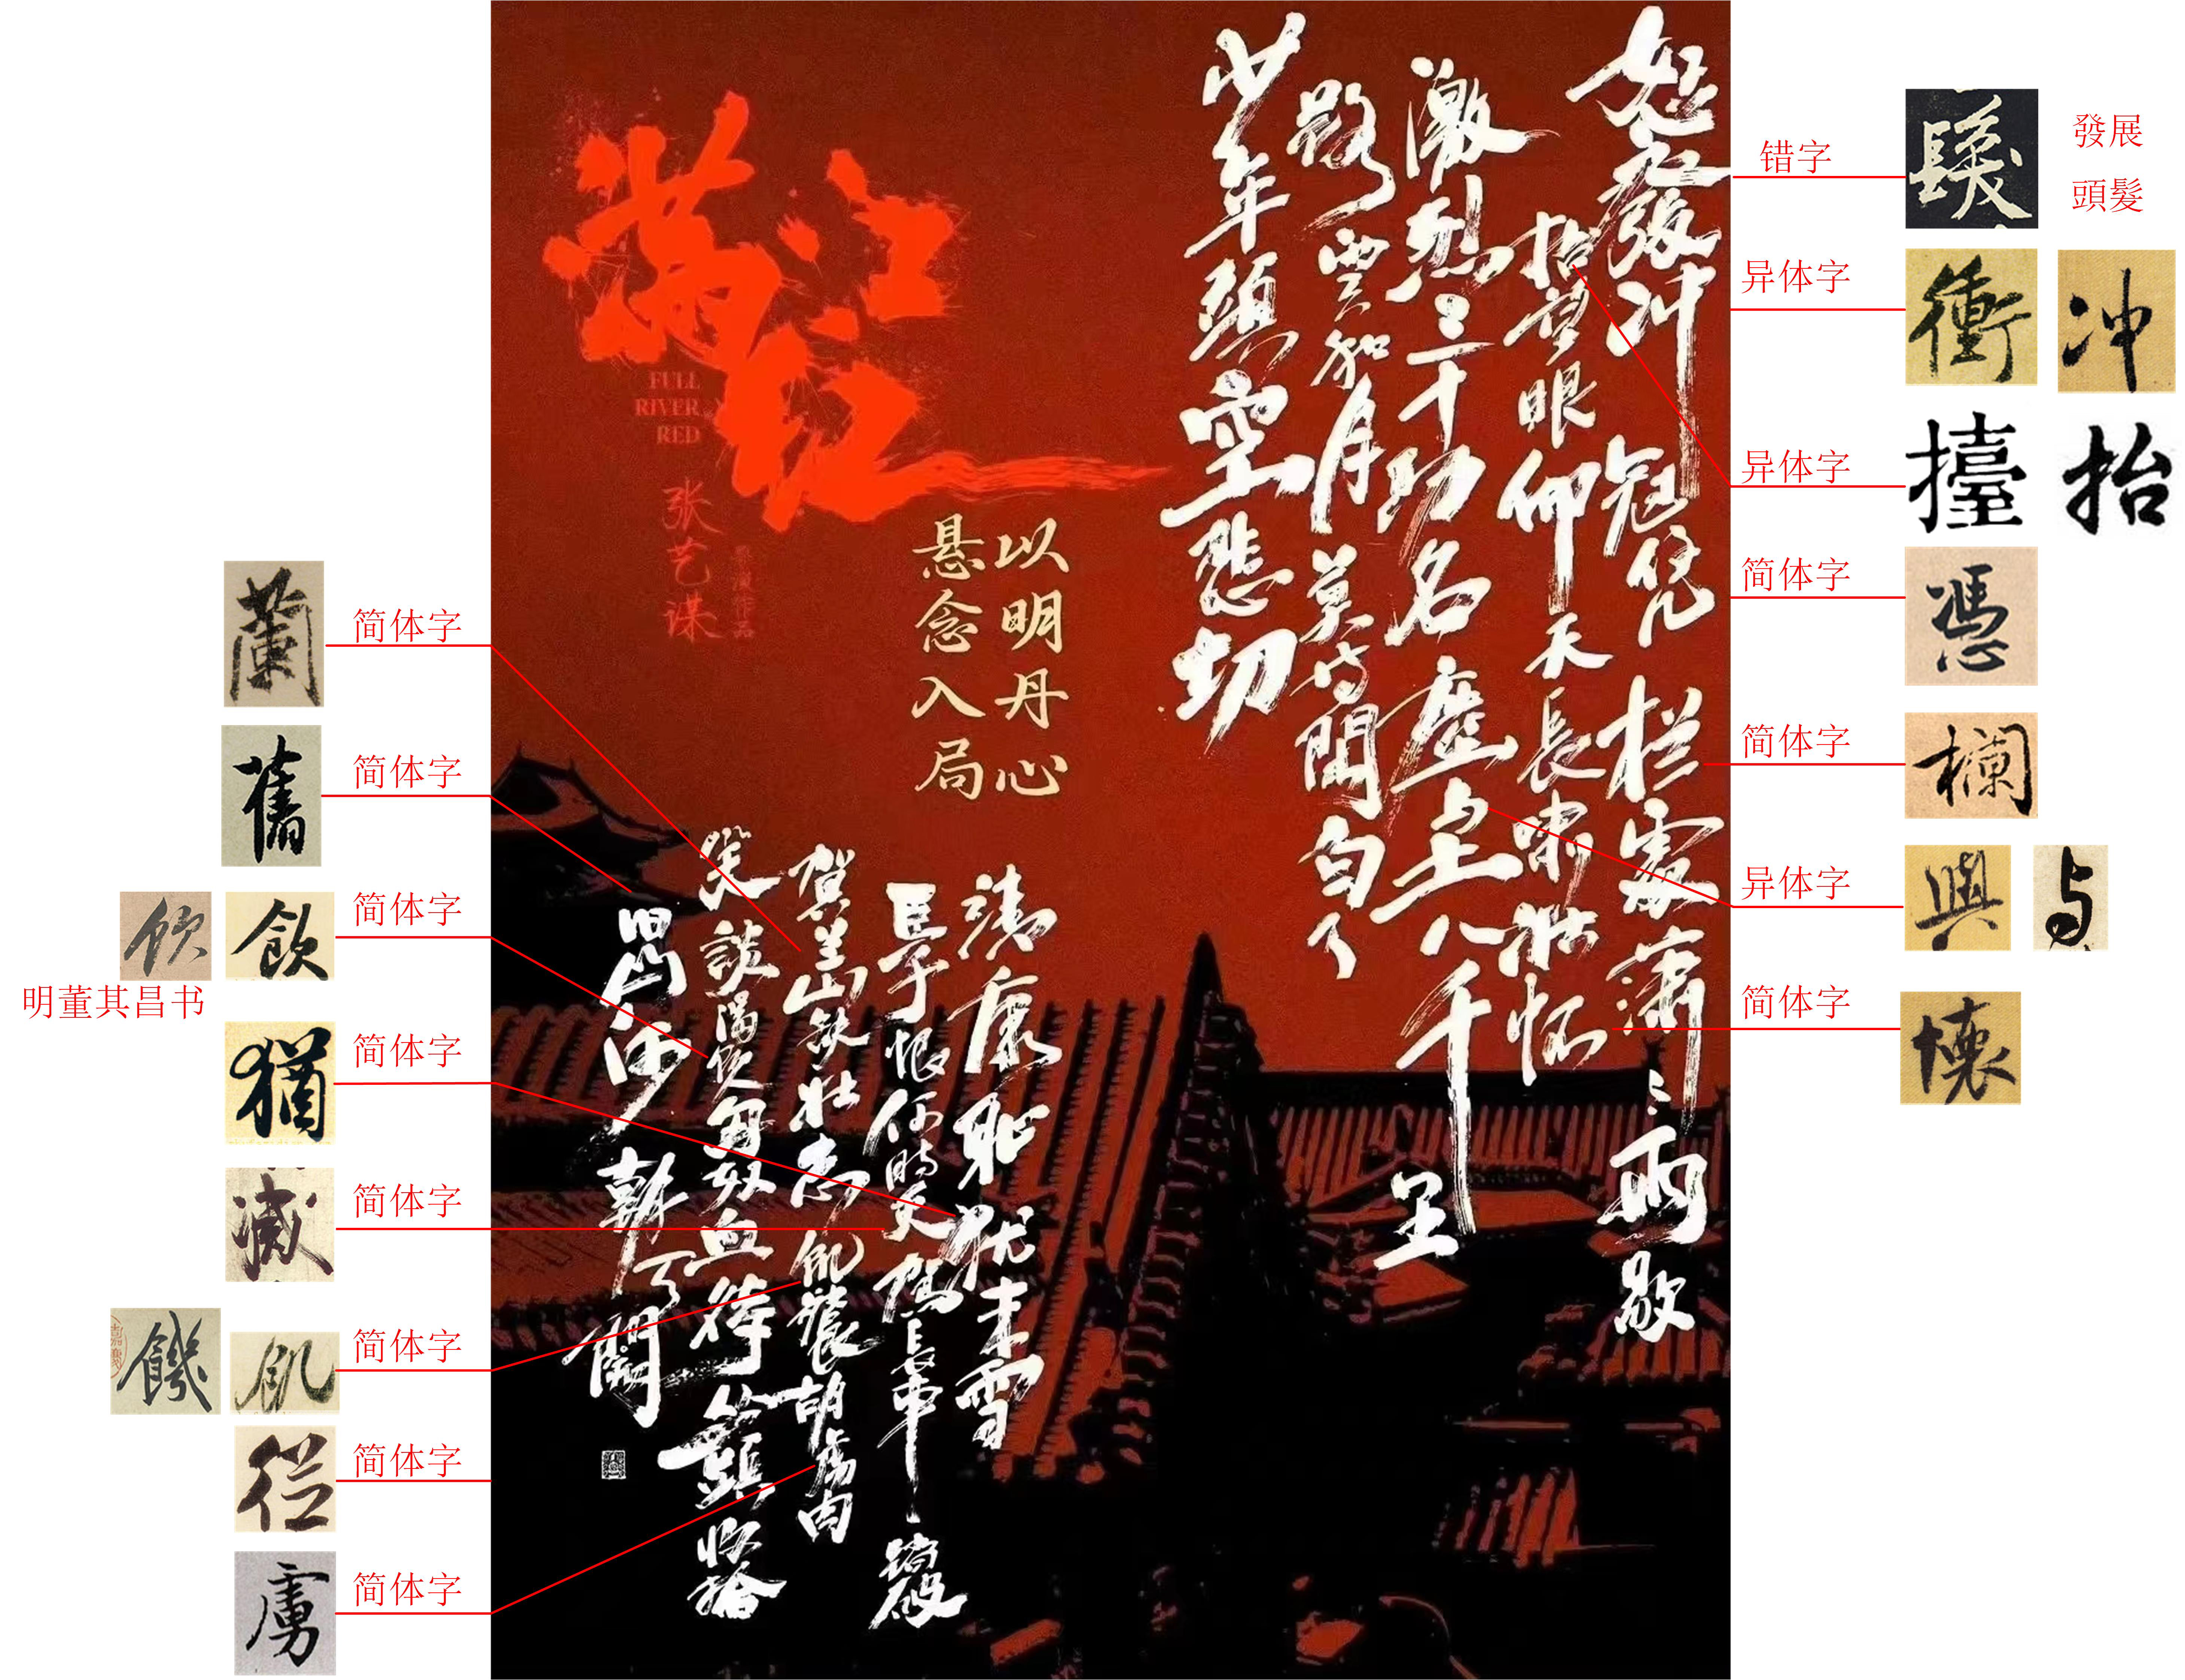 满江红
FULL
RIVER
RED
张艺谋
以明丹心
悬念入局
怒發冲冠凭栏處潇々雨歇
抬望眼仰天長啸壮怀
激烈三十功名塵与土八千里
路雲和月莫等閒白了
少年頭空悲切
靖康耻犹未雪
臣子恨何時灭駕長車踏破
贺兰山缺壮志飢餐胡虏肉
笑談渴饮匈奴血待從頭收拾
旧山河朝天闕
错字
髮
發展
頭髮
异体字
衝
冲
异体字
擡
抬
简体字
憑
简体字
欄
异体字
與
与
简体字
懷
蘭
简体字
舊
简体字
飲
飲
简体字
明董其昌书
猶
简体字
滅
简体字
饑
飢
简体字
從
简体字
虜
简体字